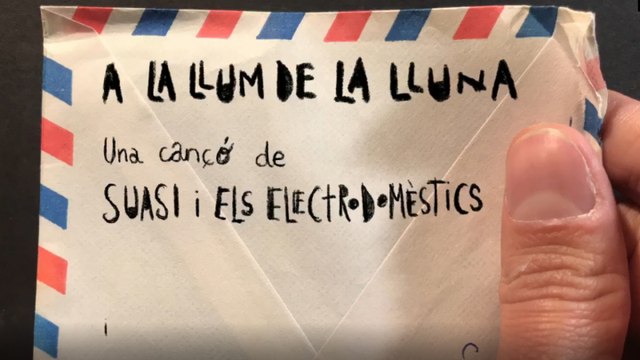 A LA LLUM DE LA LLUNA
Una cançó de
SUASI i ELS ELECTRODOMÈSTICS
i